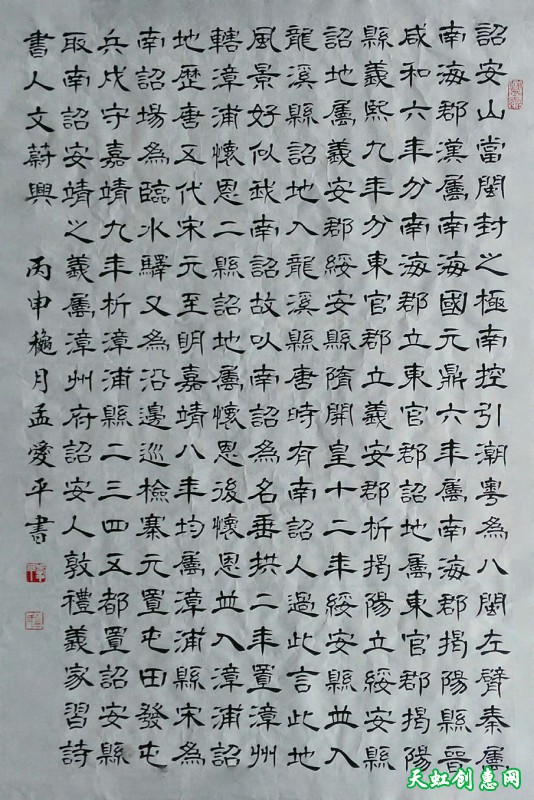 詔安山當閩封之極南控引潮粵為八閩左臂秦屬
南海郡漢屬南海國元鼎六年屬南海郡揭陽縣晉
咸和六年分南海郡立東官郡詔地屬東官郡揭陽
縣義熙九年分東官郡立義安郡析揭陽立綏安縣
詔地屬義安郡綏安縣隋開皇十二年綏安縣並入
龍溪縣詔地入龍溪縣唐時有南詔人過此言此地
風景好似我南詔故以南詔為名垂拱二年置漳州
轄漳浦懷恩二縣詔地屬懷恩後懷恩並入漳浦詔
地歷唐五代宋元至明嘉靖八年均屬漳浦縣宋為
南詔場為臨水驛又為沿邊巡檢寨元置屯田發屯
兵戍守嘉靖九年析漳浦縣二三四五都置詔安縣
取南詔安靖之義屬漳州府詔安人敦禮義家習詩
書人文蔚興 丙申穐月孟愛平書
天虹创惠网